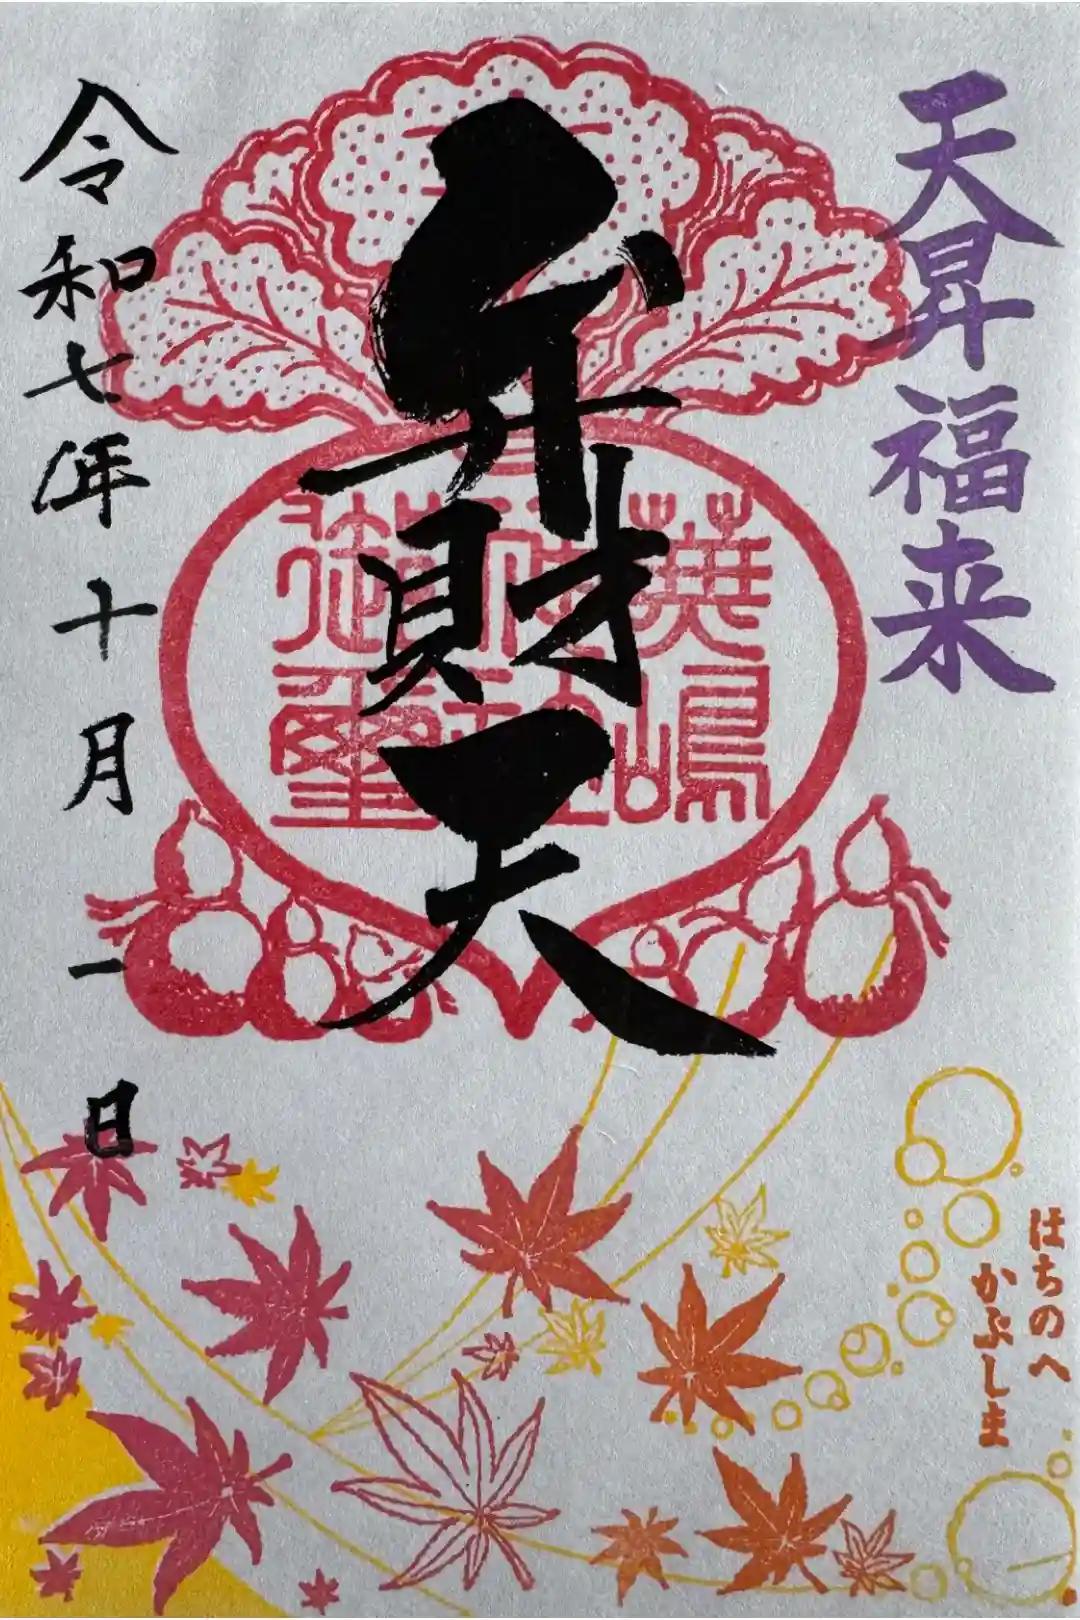 天昇福来
弁財天
蕪嶋
御璽
令和七年十月一日
はちのへ
かぶしま